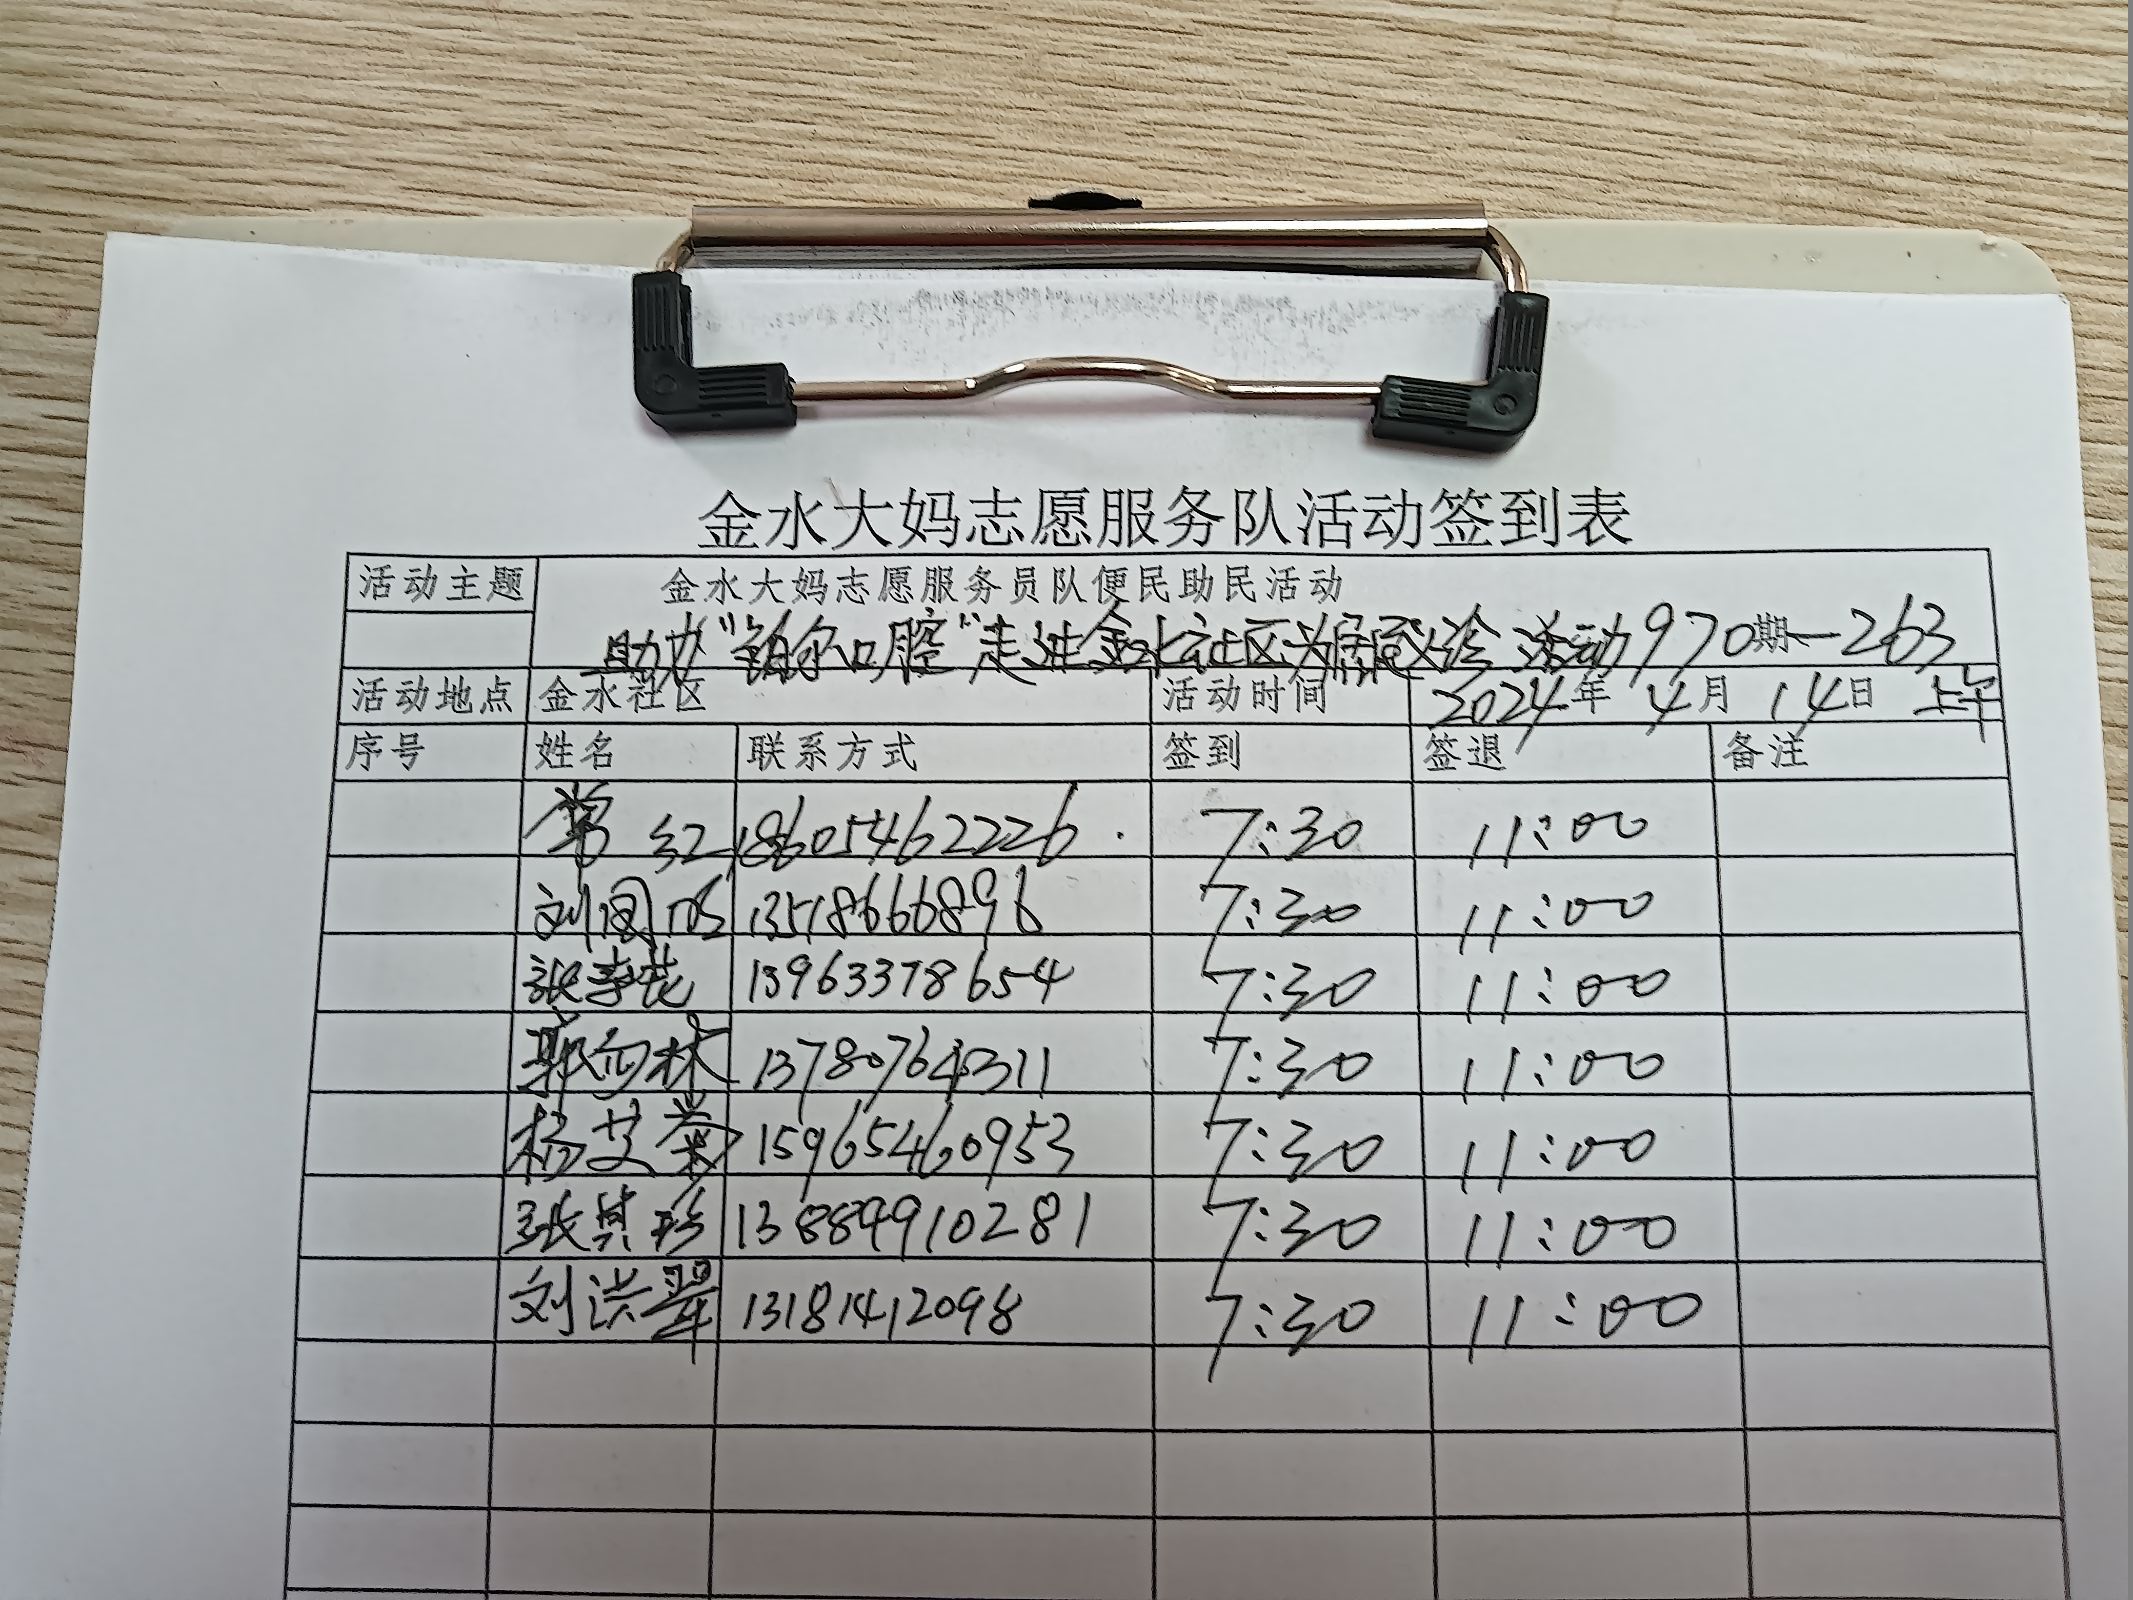 金水大妈志愿服务队活动签到表
活动主题 金水大妈志愿服务员队便民助民活动
助力"铂尔口腔"走进金水社区为居民义诊活动970期—263
活动地点 金水社区 活动时间 2024年4月14日 上午
序号 姓名 联系方式 签到 签退 备注
常红 18605462226 7:30 11:00
刘 13518666896 7:30 11:00
张 花 13963378654 7:30 11:00
郭向林 13780764311 7:30 11:00
杨艾菊 15965460953 7:30 11:00
张其珍 13889910281 7:30 11:00
刘洪翠 13181412098 7:30 11:00